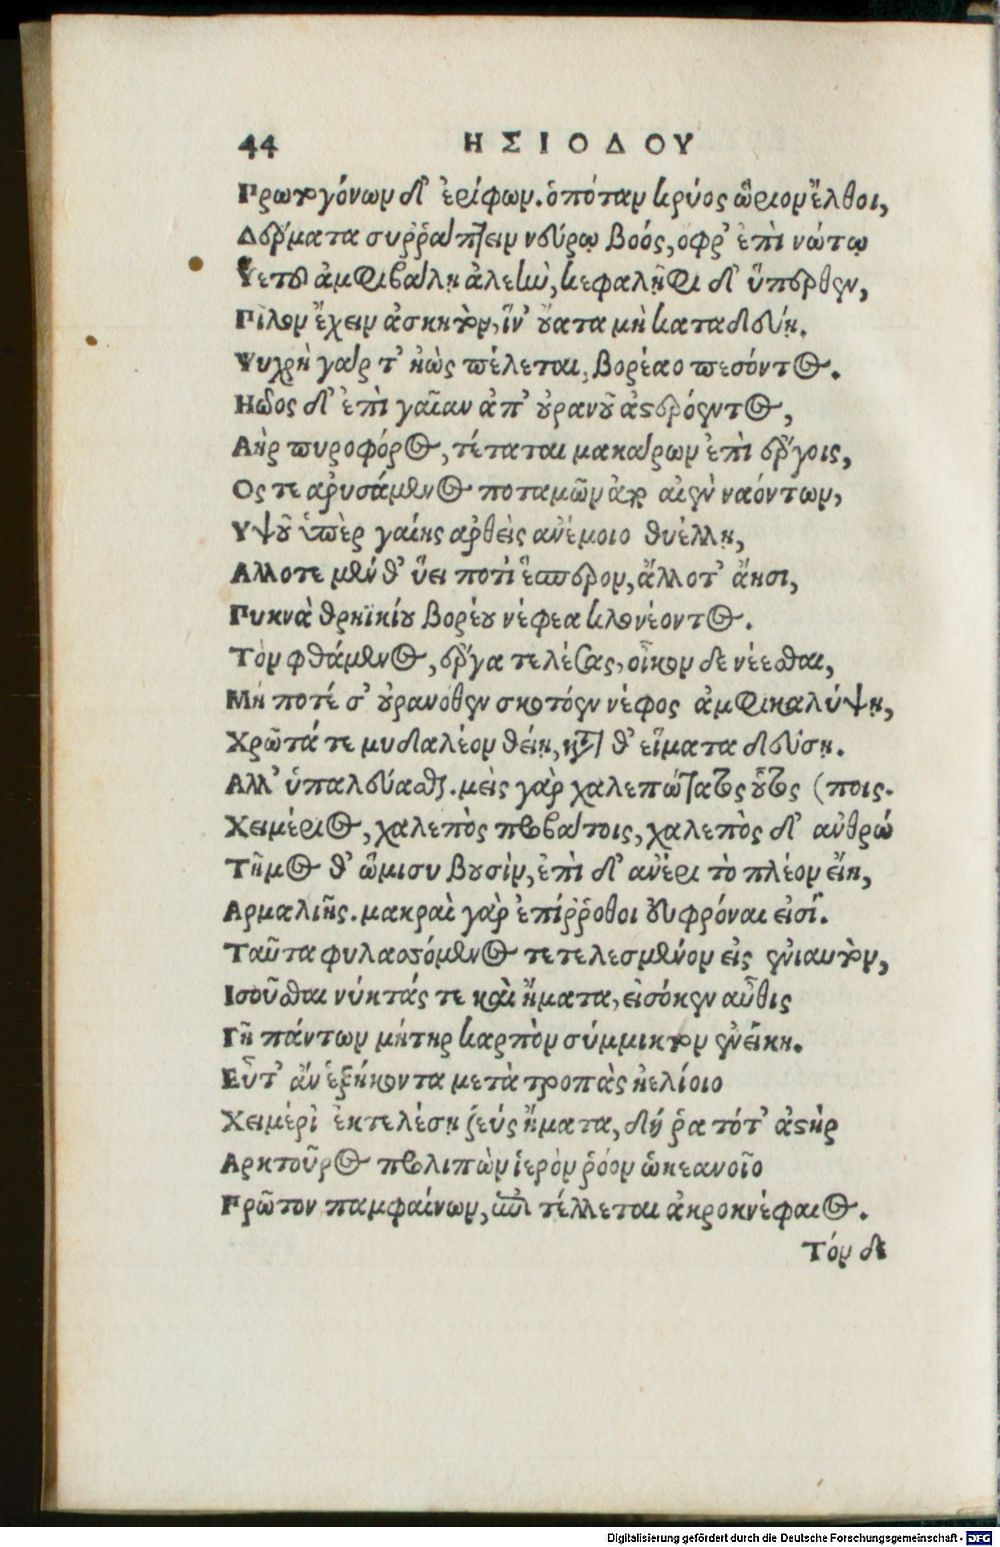 44 ΗΣΙΟΔΟΥ
Πρωτογόνων δ' ἐρίφων. ὁπόταν κρύος ὥριον ἔλθοι,
Δέρματα συῤῥάπτειν νεύρῳ βοός, οφρ' ἐπὶ νώτῳ
Ὑετοῦ ἀμφιβάλῃ ἀλεὼ, κεφαλῆφι δ' ὕπερθεν,
Πῖλον ἔχειν ἀσκητὸν, ἵν' οὔατα μὴ καταδεύῃ.
Ψυχρὴ γάρ τ' ἠὼς πέλεται, βορέαο πεσόντος.
Ηδος δ' ἐπὶ γαῖαν ἀπ' οὐρανοῦ ἀστερόεντος,
Αὴρ πυροφόρος, τέταται μακάρων ἐπὶ ἔργοις,
Ος τε αρυσάμενος ποταμῶν ἀπὸ αἰὲν ναόντων,
Υψοῦ ὑπὲρ γαίης αρθεὶς ανέμοιο θυέλλῃ,
Αλλοτε μέν θ' ὕει ποτὶ ἕσπερον, ἄλλοτ' ἄησι,
Πυκνὰ θρηϊκίου βορέου νέφεα κλονέοντος.
Τὸν φθάμενος, ἔργα τελέσας, οἶκον δε νέεσθαι,
Μή ποτέ σ' οὐρανόθεν σκοτόεν νέφος ἀμφικαλύψῃ,
Χρῶτά τε μυδαλέον θείη, κατὰ θ' εἵματα δεύσῃ.
Αλλ' ὑπαλεύασθαι. μεὶς γὰρ χαλεπώτατος οὗτος (ποις.
Χειμέριος, χαλεπὸς προβάτοις, χαλεπὸς δ' ανθρώ
Τῆμος θ' ὥμισυ βουσὶν, ἐπὶ δ' ανέρι τὸ πλέον εἴη,
Αρμαλιῆς. μακραὶ γὰρ ἐπίῤῥοθοι εὐφρόναι εἰσί.
Ταῦτα φυλασσόμενος τετελεσμένον εἰς ἐνιαυτὸν,
Ισοῦσθαι νύκτάς τε καὶ ἤματα, εἰσόκεν αὖθις
Γῆ πάντων μήτηρ καρπὸν σύμμικτον ἐνείκη.
Εὖτ' ἂν ἑξήκοντα μετὰ τροπὰς ἠελίοιο
Χειμέρι' ἐκτελέσῃ ζεύς ἤματα, δή ῥα τότ' ἀστὴρ
Αρκτοῦρος προλιπὼν ἱερὸν ῥόον ὠκεανοῖο
Πρῶτον παμφαίνων, ἐπι τέλλεται ἀκροκνέφαιος.
Τόν δε
Digitalisierung gefördert durch die Deutsche Forschungsgemeinschaft - DFG